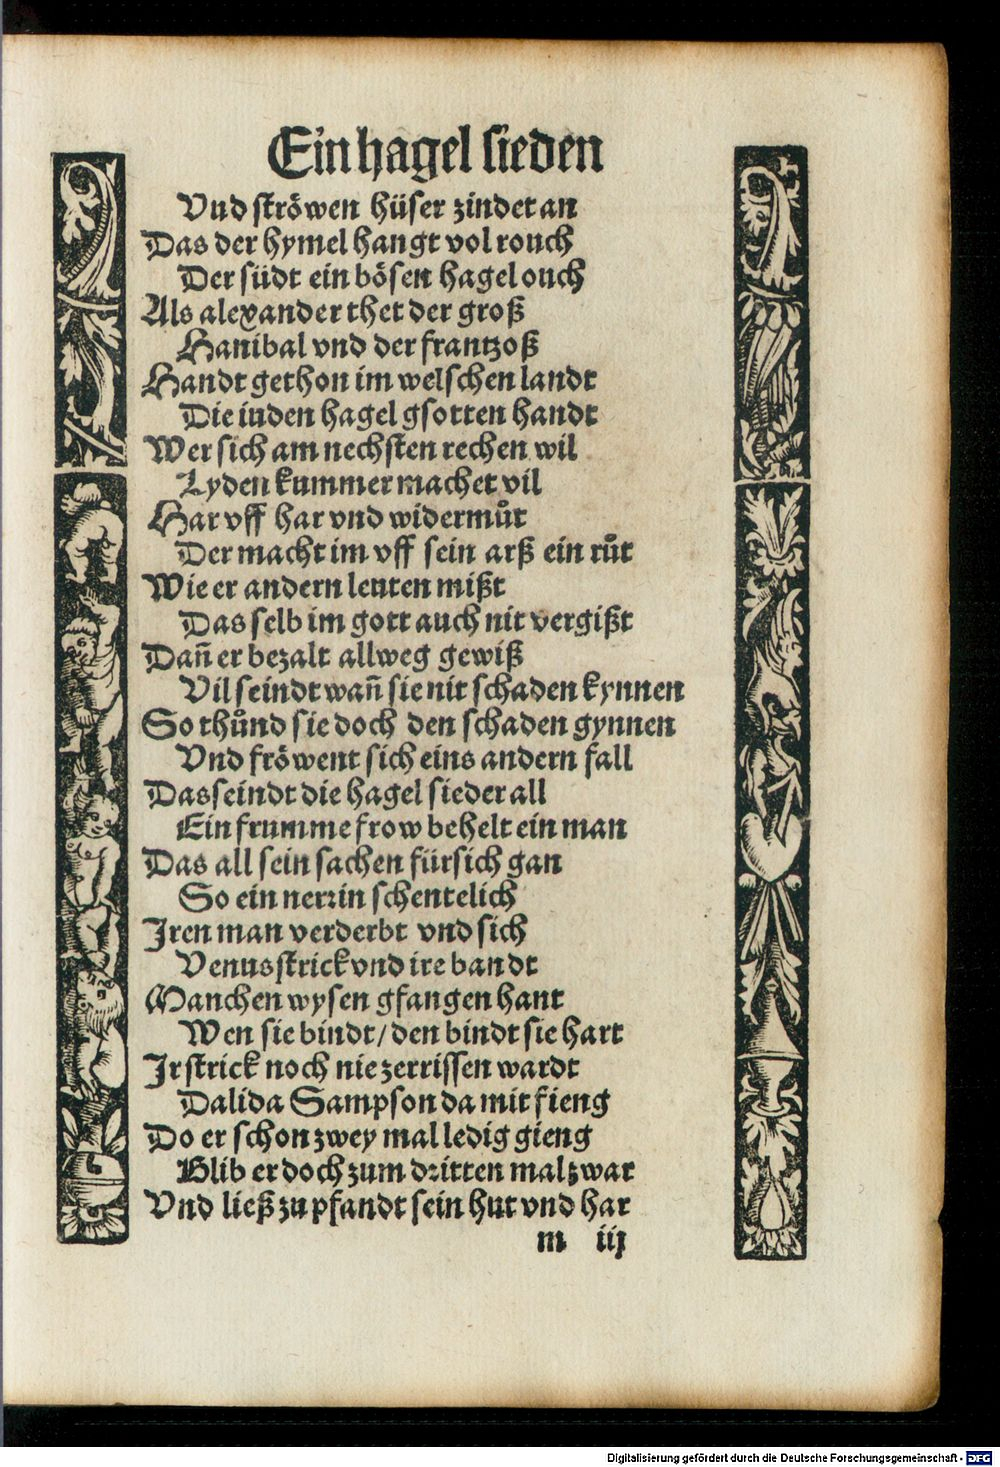 Ein hagel sieden
Vnd ströwen hüser zindet an
Das der hymel hangt vol rouch
Der südt ein bösen hagel ouch
Als alexander thet der groß
Hanibal vnd der frantzoß
Handt gethon im welschen landt
Die iuden hagel gsotten handt
Wer sich am nechsten rechen wil
Lyden kummer machet vil
Har vff har vnd widermůt
Der macht im vff sein arß ein růt
Wie er andern leuten mißt
Das selb im gott auch nit vergißt
Dañ er bezalt allweg gewiß
Vil seindt wañ sie nit schaden kynnen
So thůnd sie doch den schaden gynnen
Vnd fröwent sich eins andern fall
Das seindt die hagel sieder all
Ein frumme frow behelt ein man
Das all sein sachen fürsich gan
So ein nerrin schentelich
Iren man verderbt vnd sich
Venus strick vnd ire bandt
Manchen wysen gfangen hant
Wen sie bindt/ den bindt sie hart
Ir strick noch nie zerrissen wardt
Dalida Sampson da mit fieng
Do er schon zwey mal ledig gieng
Blib er doch zum dritten mal zwar
Vnd ließ zu pfandt sein hut vnd har
m iij
Digitalisierung gefördert durch die Deutsche Forschungsgemeinschaft - DFG